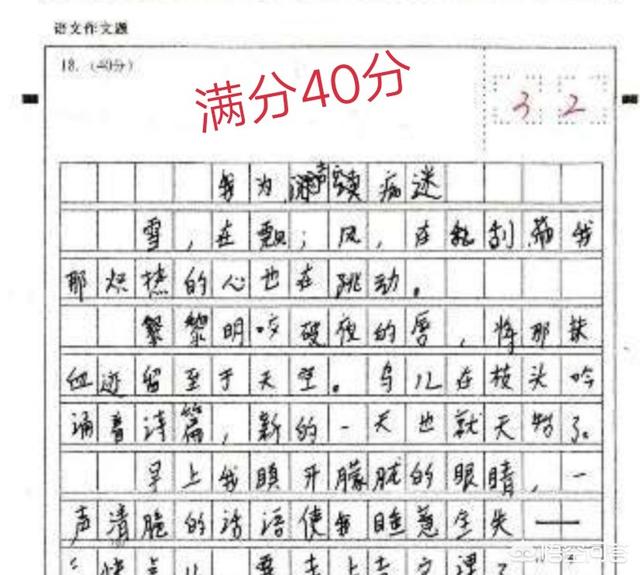 语文作文题
18.（40分）
满分40分
3 2
我为 读痴迷
雪，在飘；风，在乱刮 我
那炽热的心也在跳动。
黎明咬破夜的唇，将那抹
血迹留至于天空。鸟儿在枝头吟
诵着诗篇，新的一天也就天 了。
早上我 开朦胧的眼睛，一
声清脆的话语使我睡意全失—
快点儿 要去上 文课了
悟空问答